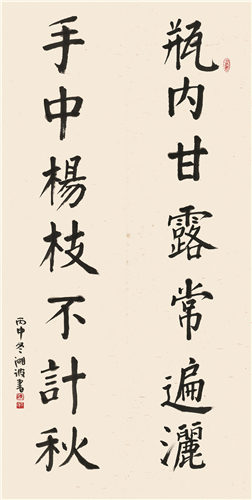 瓶内甘露常遍灑
手中楊枝不計秋
丙申冬湖波書